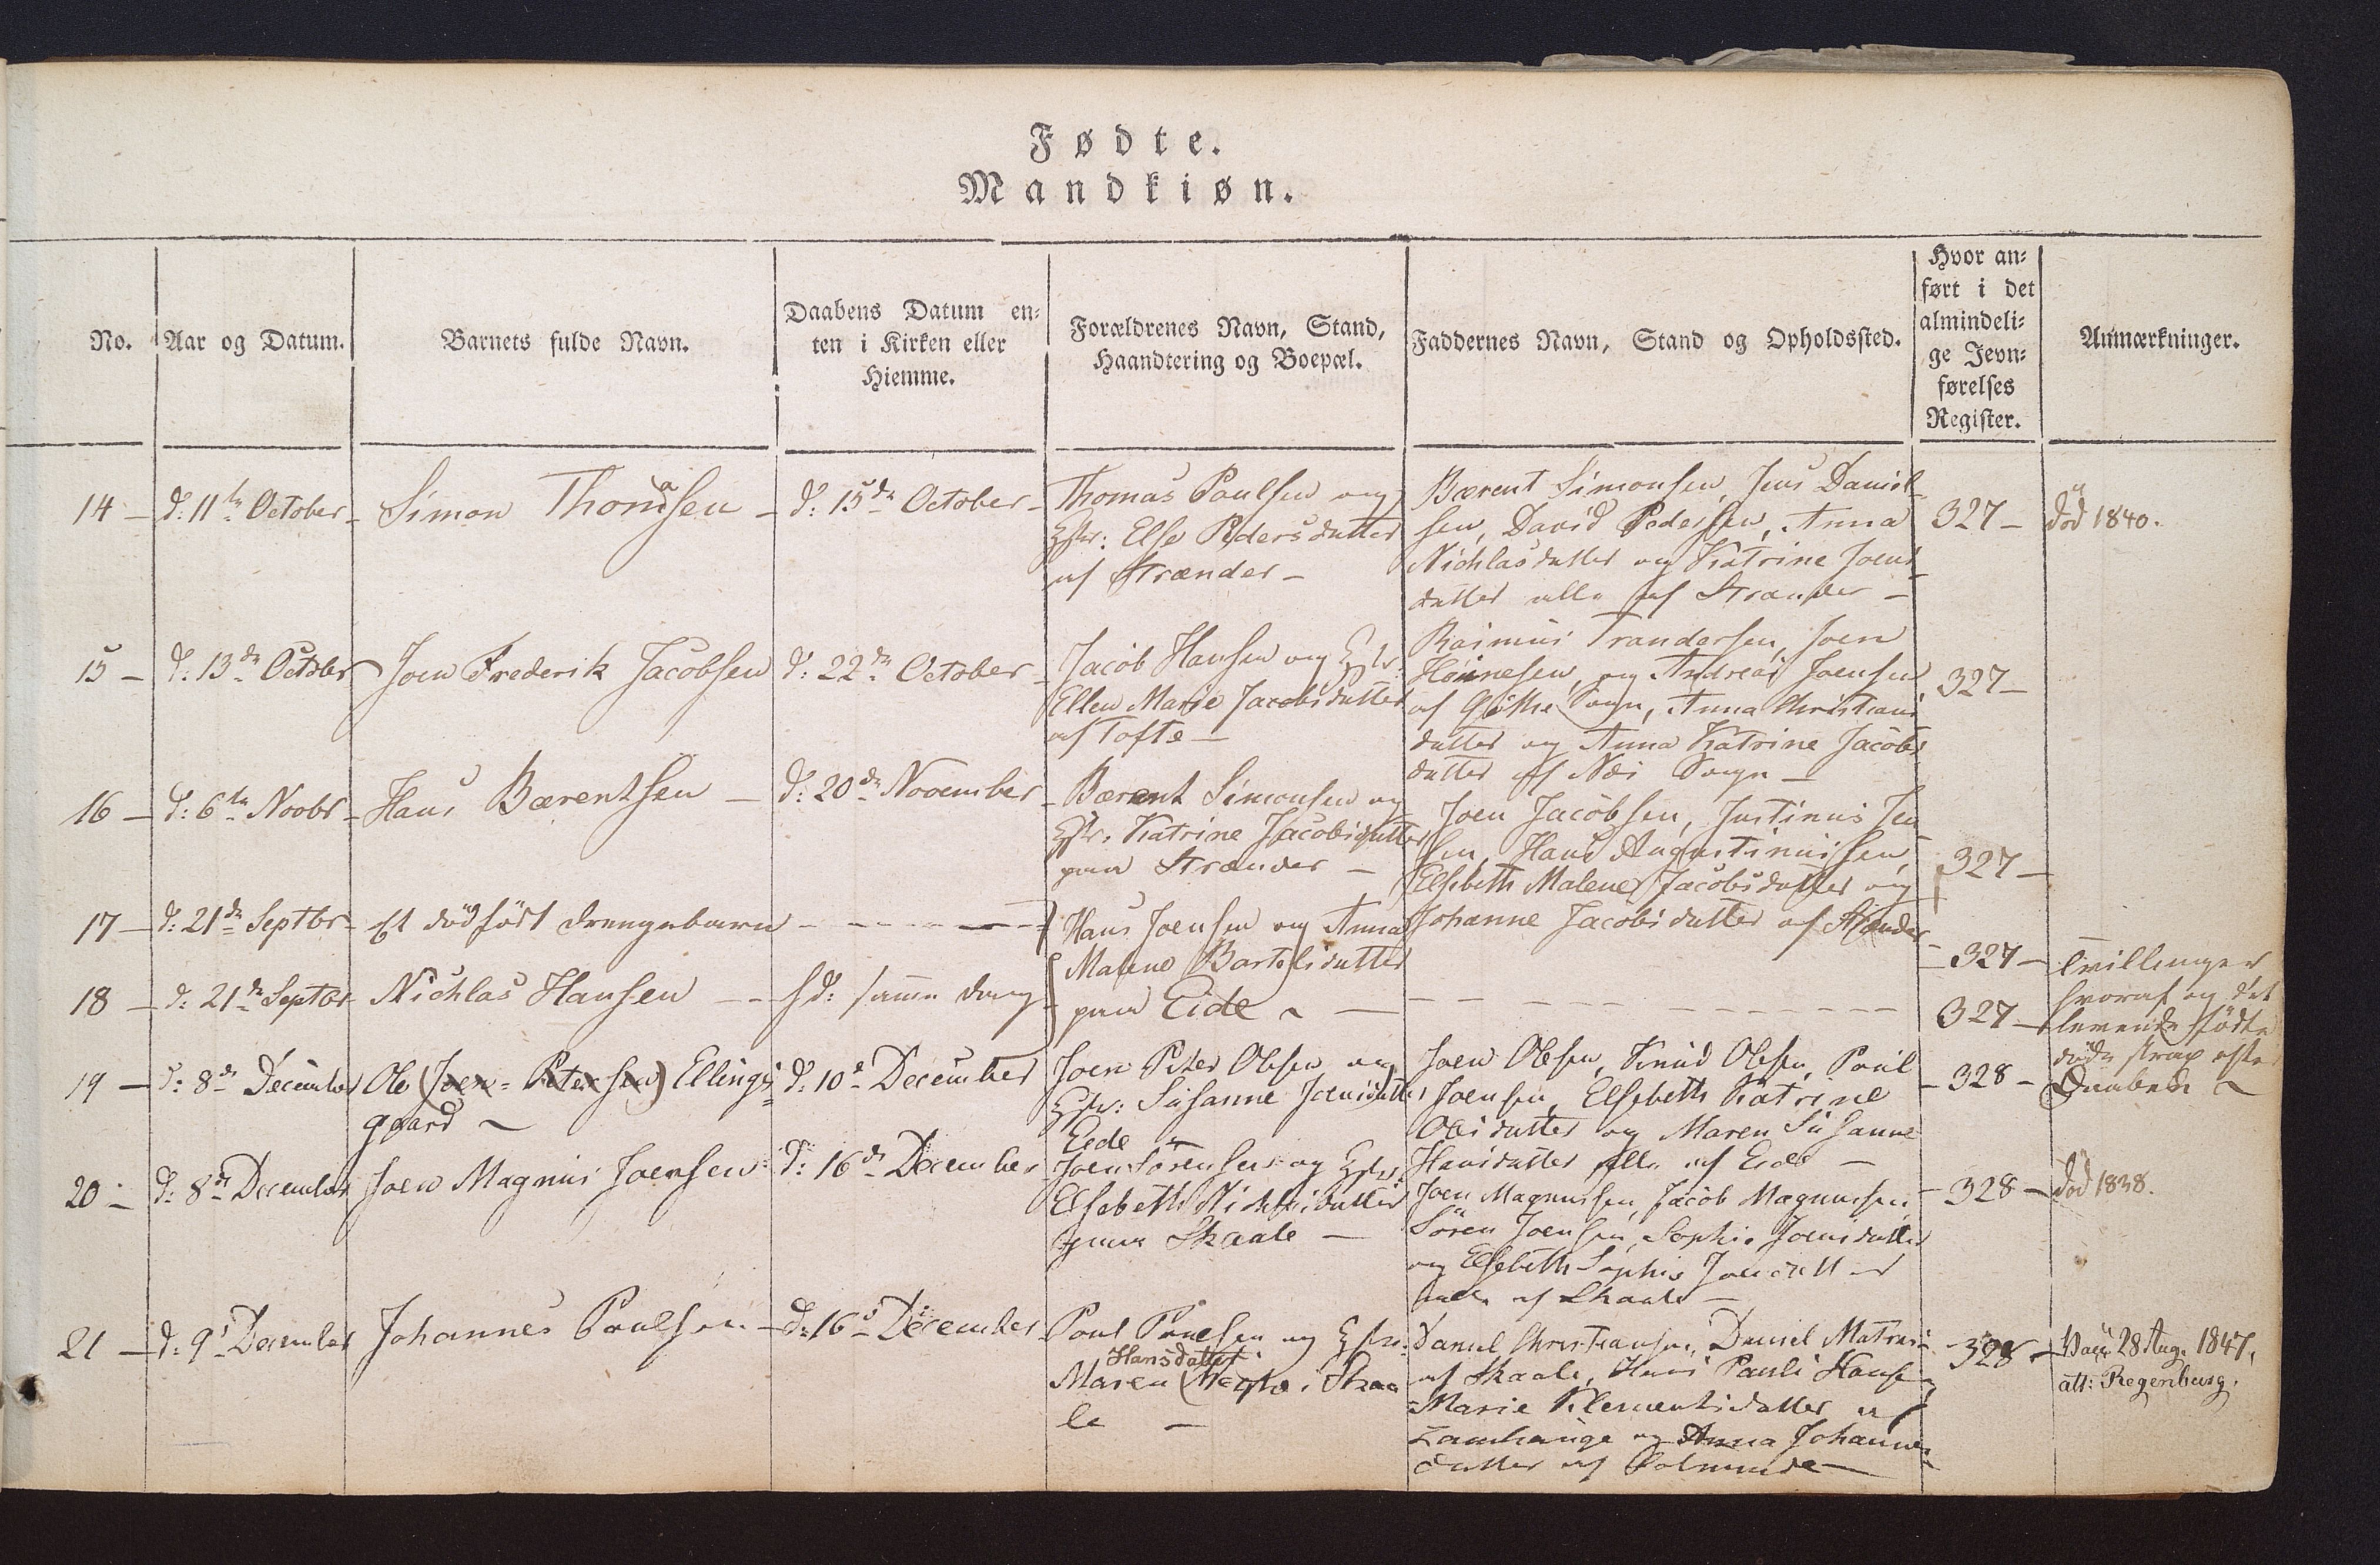 Fødte.
Mandkiøn.
No.
Aar og Datum.
Barnets fulde Navn.
Daabens Datum en-
ten i Kirken eller
Hiemme.
Forældrenes Navn, Stand,
Haandtering og Boepæl.
Faddernes Navn, Stand og Opholdssted.
Hvor an-
ført i det
almindeli-
ge Jevn-
førelses
Register.
Anmærkninger.
14 –
d: 11te October –
Simon Thomasen –
d: 15de October –
Thomas Poulsen og
Hstr: Else Pedersdatter
af Strænder –
Bærent Simonsen, Jens Daniel-
sen, David Pedersen, Anna
Nichlasdatter og Katrine Joens-
datter alle af Strænder –
327 –
död 1840.
15 –
d: 13de October
Joen Frederik Jacobsen
d: 22de October –
Jacob Hansen og Hstr:
Ellen Marie Jacobsdatter
af Tofte –
Rasmus Trondersen, Joen
og Andreas Joensen
af Göthe Sogn, Anna Christians
datter og Anna Katrine Jacobs
datter af Næs Sogn –
327 –
16 –
d: 6te Novbr –
Hans Bærentsen –
d: 20de November –
Bærent Simonsen og
Hstr. Katrine Jacobsdatter
paa Strænder –
Joen Jacobsen, Justinus Jen
sen, Hans Augustinussen,
Elsebeth Malene Jacobsdatter og
Johanne Jacobsdatter af Strænder
327 –
17 –
d: 21de Septbr –
Et dödfört Drengebarn
Hans Joensen og Anna
Malene Bartelsdatter
paa Eide –
327 –
18 –
d: 21de Septbr –
Nichlas Hansen –
d: samme Dag
327 –
Tvillinger
hvoraf og det
levende födte
döde strax efter
Daaben
19 –
d: 8de December
Ole (Joen = Petersen) Ellings-
gaard
d: 10de December
Joen Peter Olesen og
Hstr: Susanne Joensdatter
Eide
Joen Olesen, Knud Olesen, Poul
Joensen, Elsebeth Katrine
Olesdatter og Maren Susanne
Hansdatter alle af Eide –
328 –
20 –
d: 8de December
Joen Magnus Joensen
d: 16de December
Joen Sörensen og Hstr:
Elsebeth Nichlsdatter
paa Skaale –
Joen Magnussen, Jacob Magnussen,
Sören Joensen, Sophie Joensdatter
og Elsebeth Sophie Joensdatter
alle af Skaale –
328 –
död 1838.
21 –
d: 9de December
Johannes Poulsen –
d: 16de December
Poul Poulsen og Hstr:
Hansdatter
Maren Skaa
le –
Daniel Christiansen, Daniel Matras
af Skaale, Hans Pauli Hansen
Marie Klementsdatter af
Lamhauge og Anna Johannes
datter af
328 –
Vacc 28 Aug. 1847.
att: Regenburg.